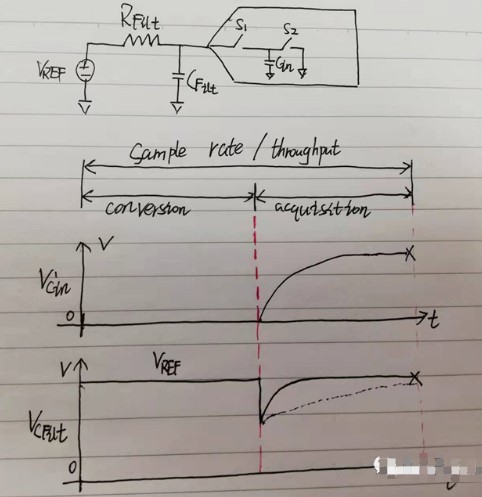 RFilt
S1
S2
VREF
CFilt
Cin
Sample rate / throughput
conversion
acquisition
V
VCin
0
t
V
VREF
VCFilt
0